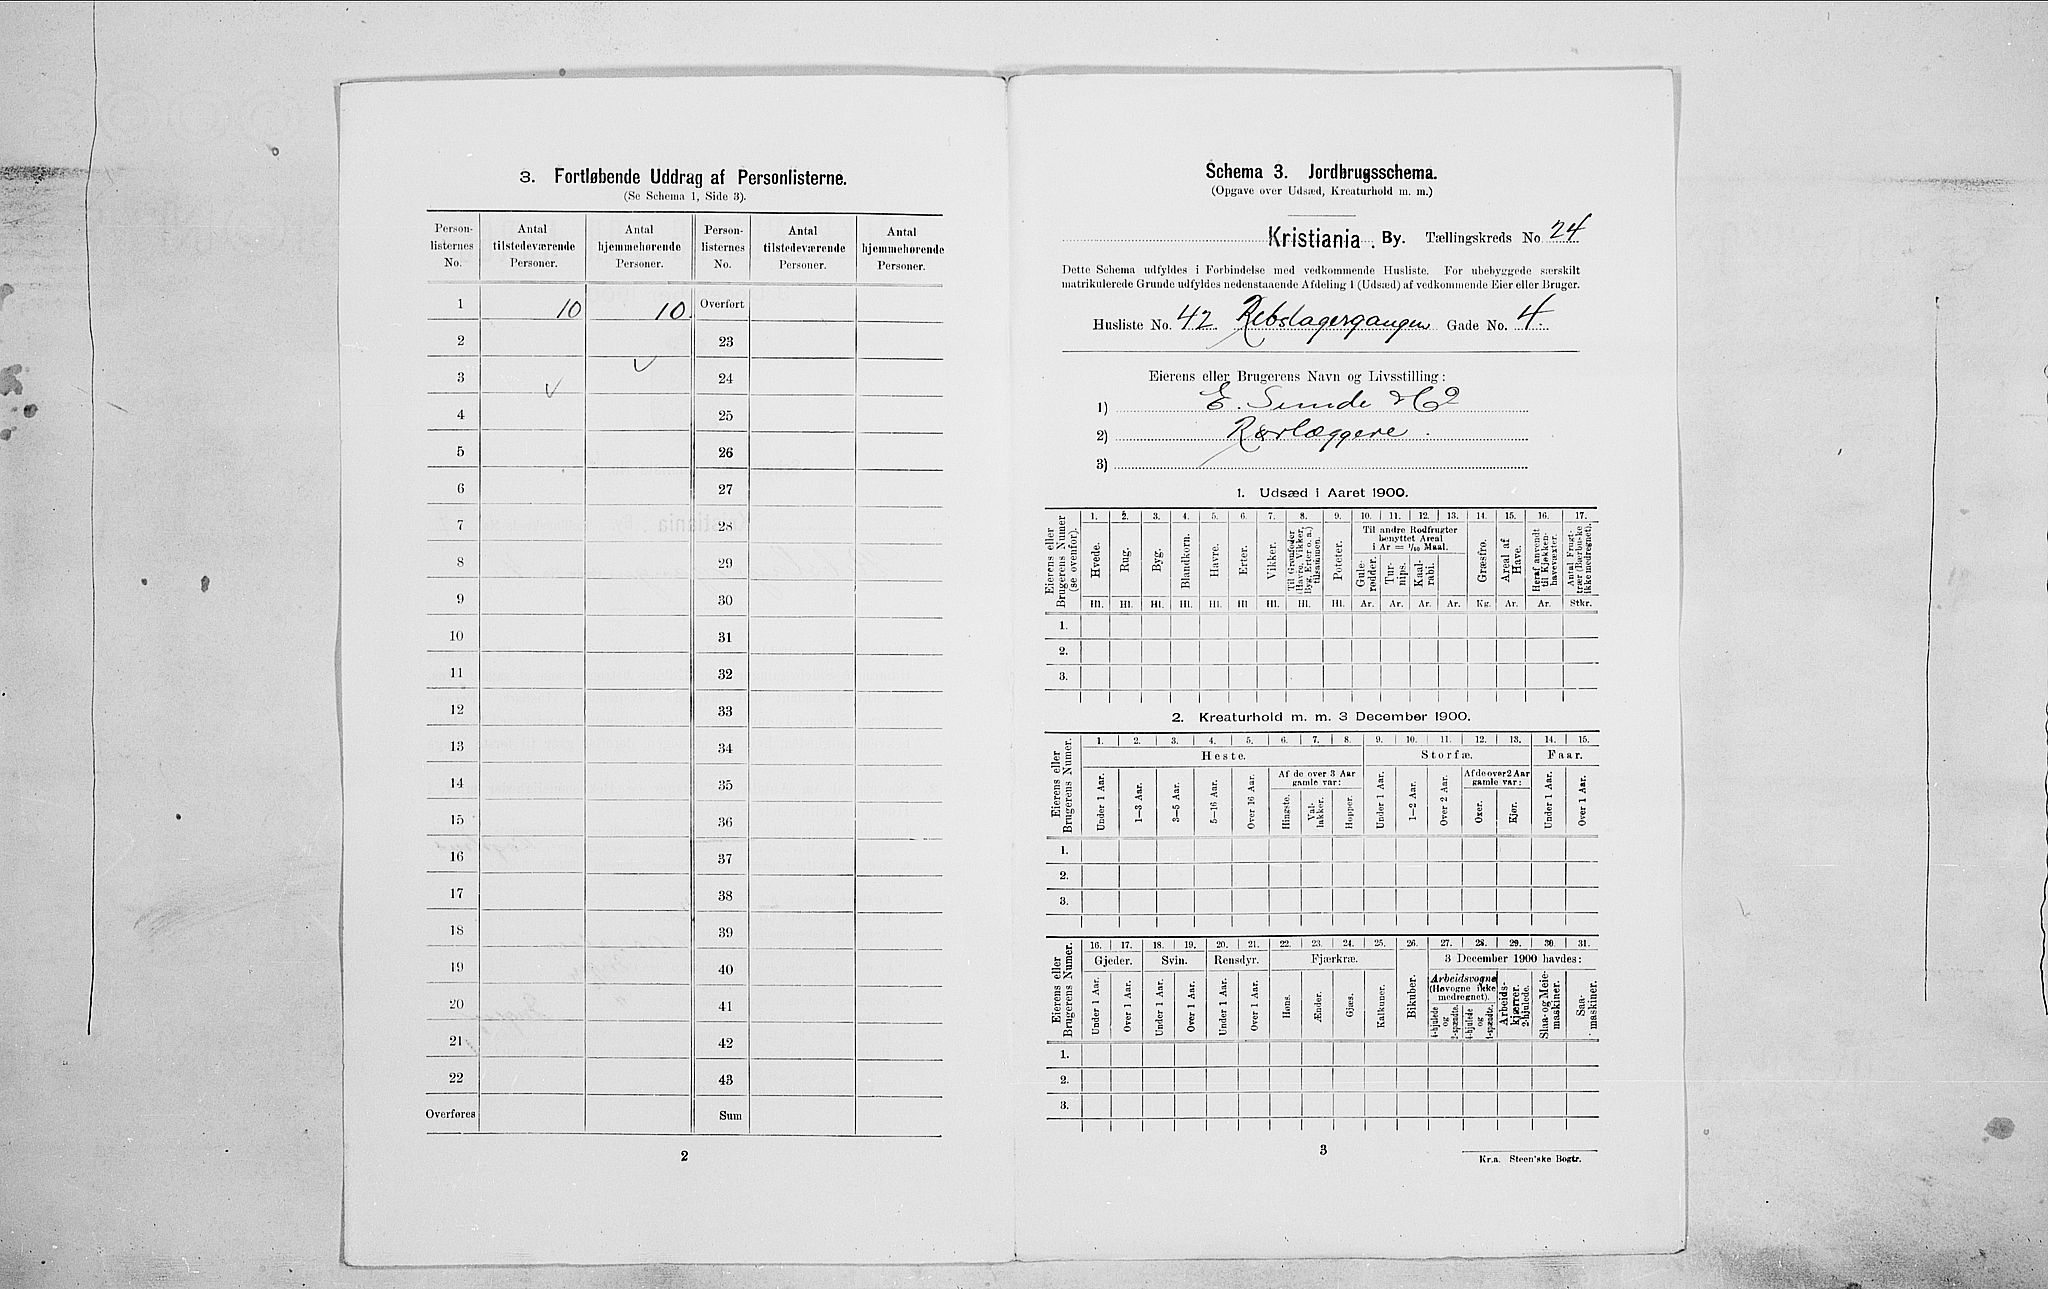 3. Fortløbende Uddrag af Personlisterne.
(Se Schema 1, Side 3).
Person-listernes No. | Antal tilstedeværende Personer. | Antal hjemmehørende Personer. | Person-listernes No. | Antal tilstedeværende Personer. | Antal hjemmehørende Personer.
1 | 10 | 10. | Overført
2 23
3 24
4 25
5 26
6 27
7 28
8 29
9 30
10 31
11 32
12 33
13 34
14 35
15 36
16 37
17 38
18 39
19 40
20 41
21 42
22 43
Overføres Sum
2
Schema 3. Jordbrugsschema.
(Opgave over Udsæd, Kreaturhold m. m.)
Kristiania. By. Tællingskreds No 24
Dette Schema udfyldes i Forbindelse med vedkommende Husliste. For ubebyggede særskilt
matrikulerede Grunde udfyldes nedenstaaende Afdeling 1 (Udsæd) af vedkommende Eier eller Bruger.
Husliste No. 42. Rebslagergangen Gade No. 4.
Eierens eller Brugerens Navn og Livsstilling:
1) E. Sunde & Co
2) Rørlæggere.
3)
1. Udsæd i Aaret 1900.
Eierens eller Brugerens Numer (se ovenfor).
1. 2. 3. 4. 5. 6. 7. 8. 9. 10. 11. 12. 13. 14. 15. 16. 17.
Til andre Rodfrugter benyttet Areal i Ar = 1/10 Maal.
Hvede. Rug. Byg. Blandkorn. Havre. Erter. Vikker. Til Grønfoder (Havre, Vikker, Byg, Erter o. a.) tilsammen. Poteter. Gule-rødder. Tur-nips. Kaal-rabi. Græsfrø. Areal af Have. Heraf anvendt til Kjøkken-havevæxter. Antal Frugt-trær (Bærbuske ikke medregnet).
Hl. Hl. Hl. Hl. Hl. Hl Hl. Hl. Hl. Ar. Ar. Ar. Ar. Kg. Ar. Ar. Stkr.
1.
2.
3.
2. Kreaturhold m. m. 3 December 1900.
Eierens eller Brugerens Numer.
1. 2. 3. 4. 5. 6. 7. 8. 9. 10. 11. 12. 13. 14. 15.
Heste. Storfæ. Faar.
Af de over 3 Aar gamle var: Af de over 2 Aar gamle var:
Under 1 Aar. 1–3 Aar. 3–5 Aar. 5–16 Aar. Over 16 Aar. Hingste. Val-lakker. Hopper. Under 1 Aar. 1–2 Aar. Over 2 Aar. Oxer. Kjør. Under 1 Aar. Over 1 Aar.
1.
2.
3.
Eierens eller Brugerens Numer.
16. 17. 18. 19. 20. 21. 22. 23. 24. 25. 26. 27. 28. 29. 30. 31.
Gjeder. Svin. Rensdyr. Fjærkræ. Bikuber. 3 December 1900 havdes:
Arbeidsvogne (Høvogne ikke medregnet).
Under 1 Aar. Over 1 Aar. Under 1 Aar. Over 1 Aar. Under 1 Aar. Over 1 Aar. Høns. Ænder. Gjæs. Kalkuner. 4-hjulede og 2-spændte. 4-hjulede og 1-spændte. Arbeids-kjærrer, 2-hjulede. Slaa- og Meie-maskiner. Saa-maskiner.
1.
2.
3.
3
Kr.a. Steen'ske Bogtr.